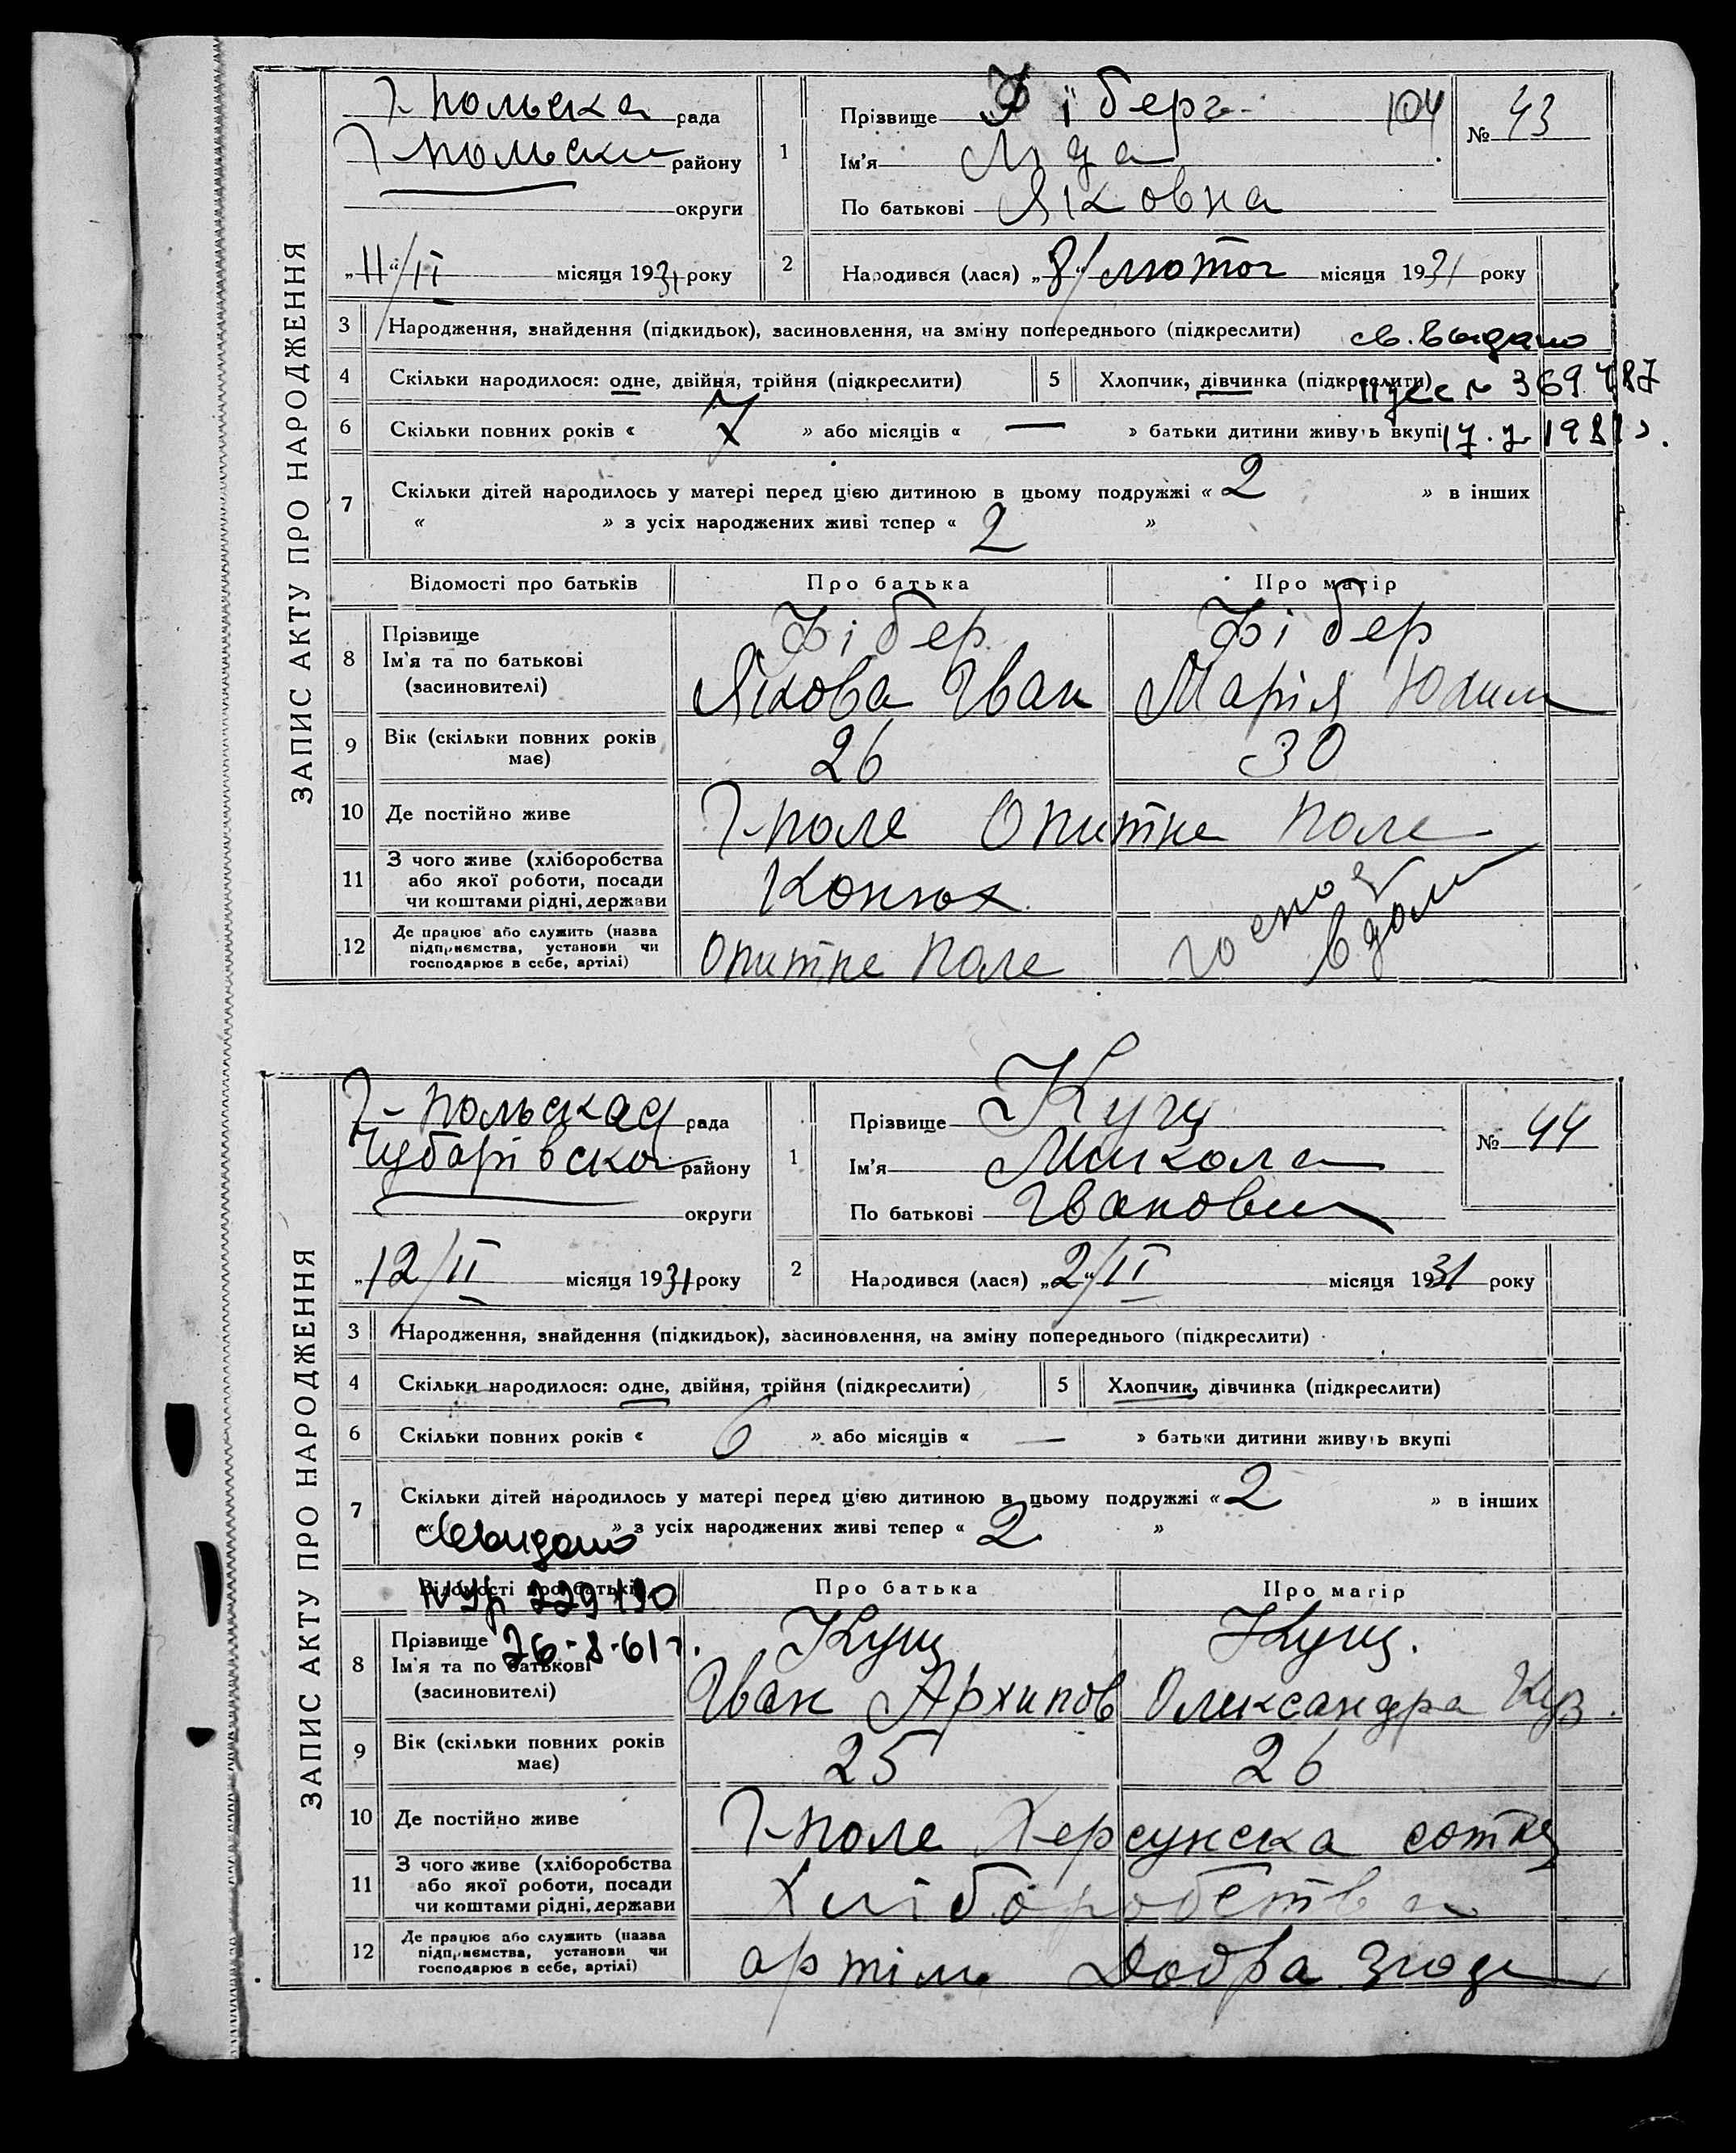 ЗАПИС АКТУ ПРО НАРОДЖЕННЯ
Г-польска рада
Г-польски району
округи
„11“/II місяця 1931 року
1
Прізвище Фіберг 104
Ім'я Ліда
По батькові Яковна
№ 43
2
Народився (лася) „8“/лютог місяця 1931 року
3 Народження, знайдення (підкидьок), засиновлення, на зміну попереднього (підкреслити)
св. выдано
4 Скільки народилося: одне, двійня, трійня (підкреслити) 5 Хлопчик, дівчинка (підкреслити)
№ 369487
6 Скільки повних років « 7 » або місяців « — » батьки дитини живуть вкупі
7 Скільки дітей народилось у матері перед цією дитиною в цьому подружжі « 2 » в інших
« » з усіх народжених живі тепер « 2 »
Відомості про батьків Про батька Про матір
8 Прізвище
Ім'я та по батькові
(засиновителі)
Фібер Фібер
Якова Іван Марія Юхим
9 Вік (скільки повних років має) 26 30
10 Де постійно живе Г-поле Опитне поле
11 З чого живе (хліборобства
або якої роботи, посади
чи коштами рідні, держави
Конюх
12 Де працює або служить (назва
підприємства, установи чи
господарює в себе, артілі)
Опитне поле
ЗАПИС АКТУ ПРО НАРОДЖЕННЯ
Г-польскад рада
Чубарівско району
округи
„12/II місяця 1931 року
1
Прізвище Кущ
Ім'я Микола
По батькові Іванович
№ 44
2
Народився (лася) „2“/II місяця 1931 року
3 Народження, знайдення (підкидьок), засиновлення, на зміну попереднього (підкреслити)
4 Скільки народилося: одне, двійня, трійня (підкреслити) 5 Хлопчик, дівчинка (підкреслити)
6 Скільки повних років « 6 » або місяців « — » батьки дитини живуть вкупі
7 Скільки дітей народилось у матері перед цією дитиною в цьому подружжі « 2 » в інших
« » з усіх народжених живі тепер « 2 »
Св выдано
Відомості про батьків Про батька Про матір
229190
26-8-61 г.
8 Прізвище
Ім'я та по батькові
(засиновителі)
Кущ Кущ.
Іван Архипов Олександра Куз.
9 Вік (скільки повних років має) 25 26
10 Де постійно живе Г-поле Херсунска сотня
11 З чого живе (хліборобства
або якої роботи, посади
чи коштами рідні, держави
Хліборобства
12 Де працює або служить (назва
підприємства, установи чи
господарює в себе, артілі)
артіль Добра Згода